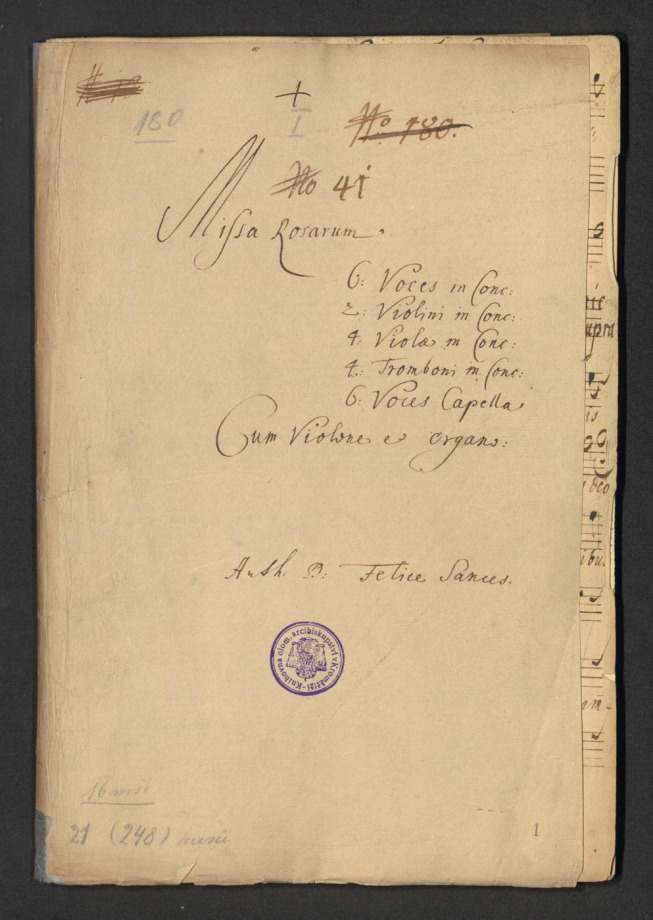 180
+
I
No 180.
No 41
Missa Rosarum.
6: Voces in Conc:
2: Violini in Conc:
4: Violæ in Conc:
4: Tromboni in Conc:
6: Voces Capella
Cum Violone e organo:
Auth: D: Felice Sances.
Knihovna olom. arcibiskupství v Kroměříži
21 (248)
1